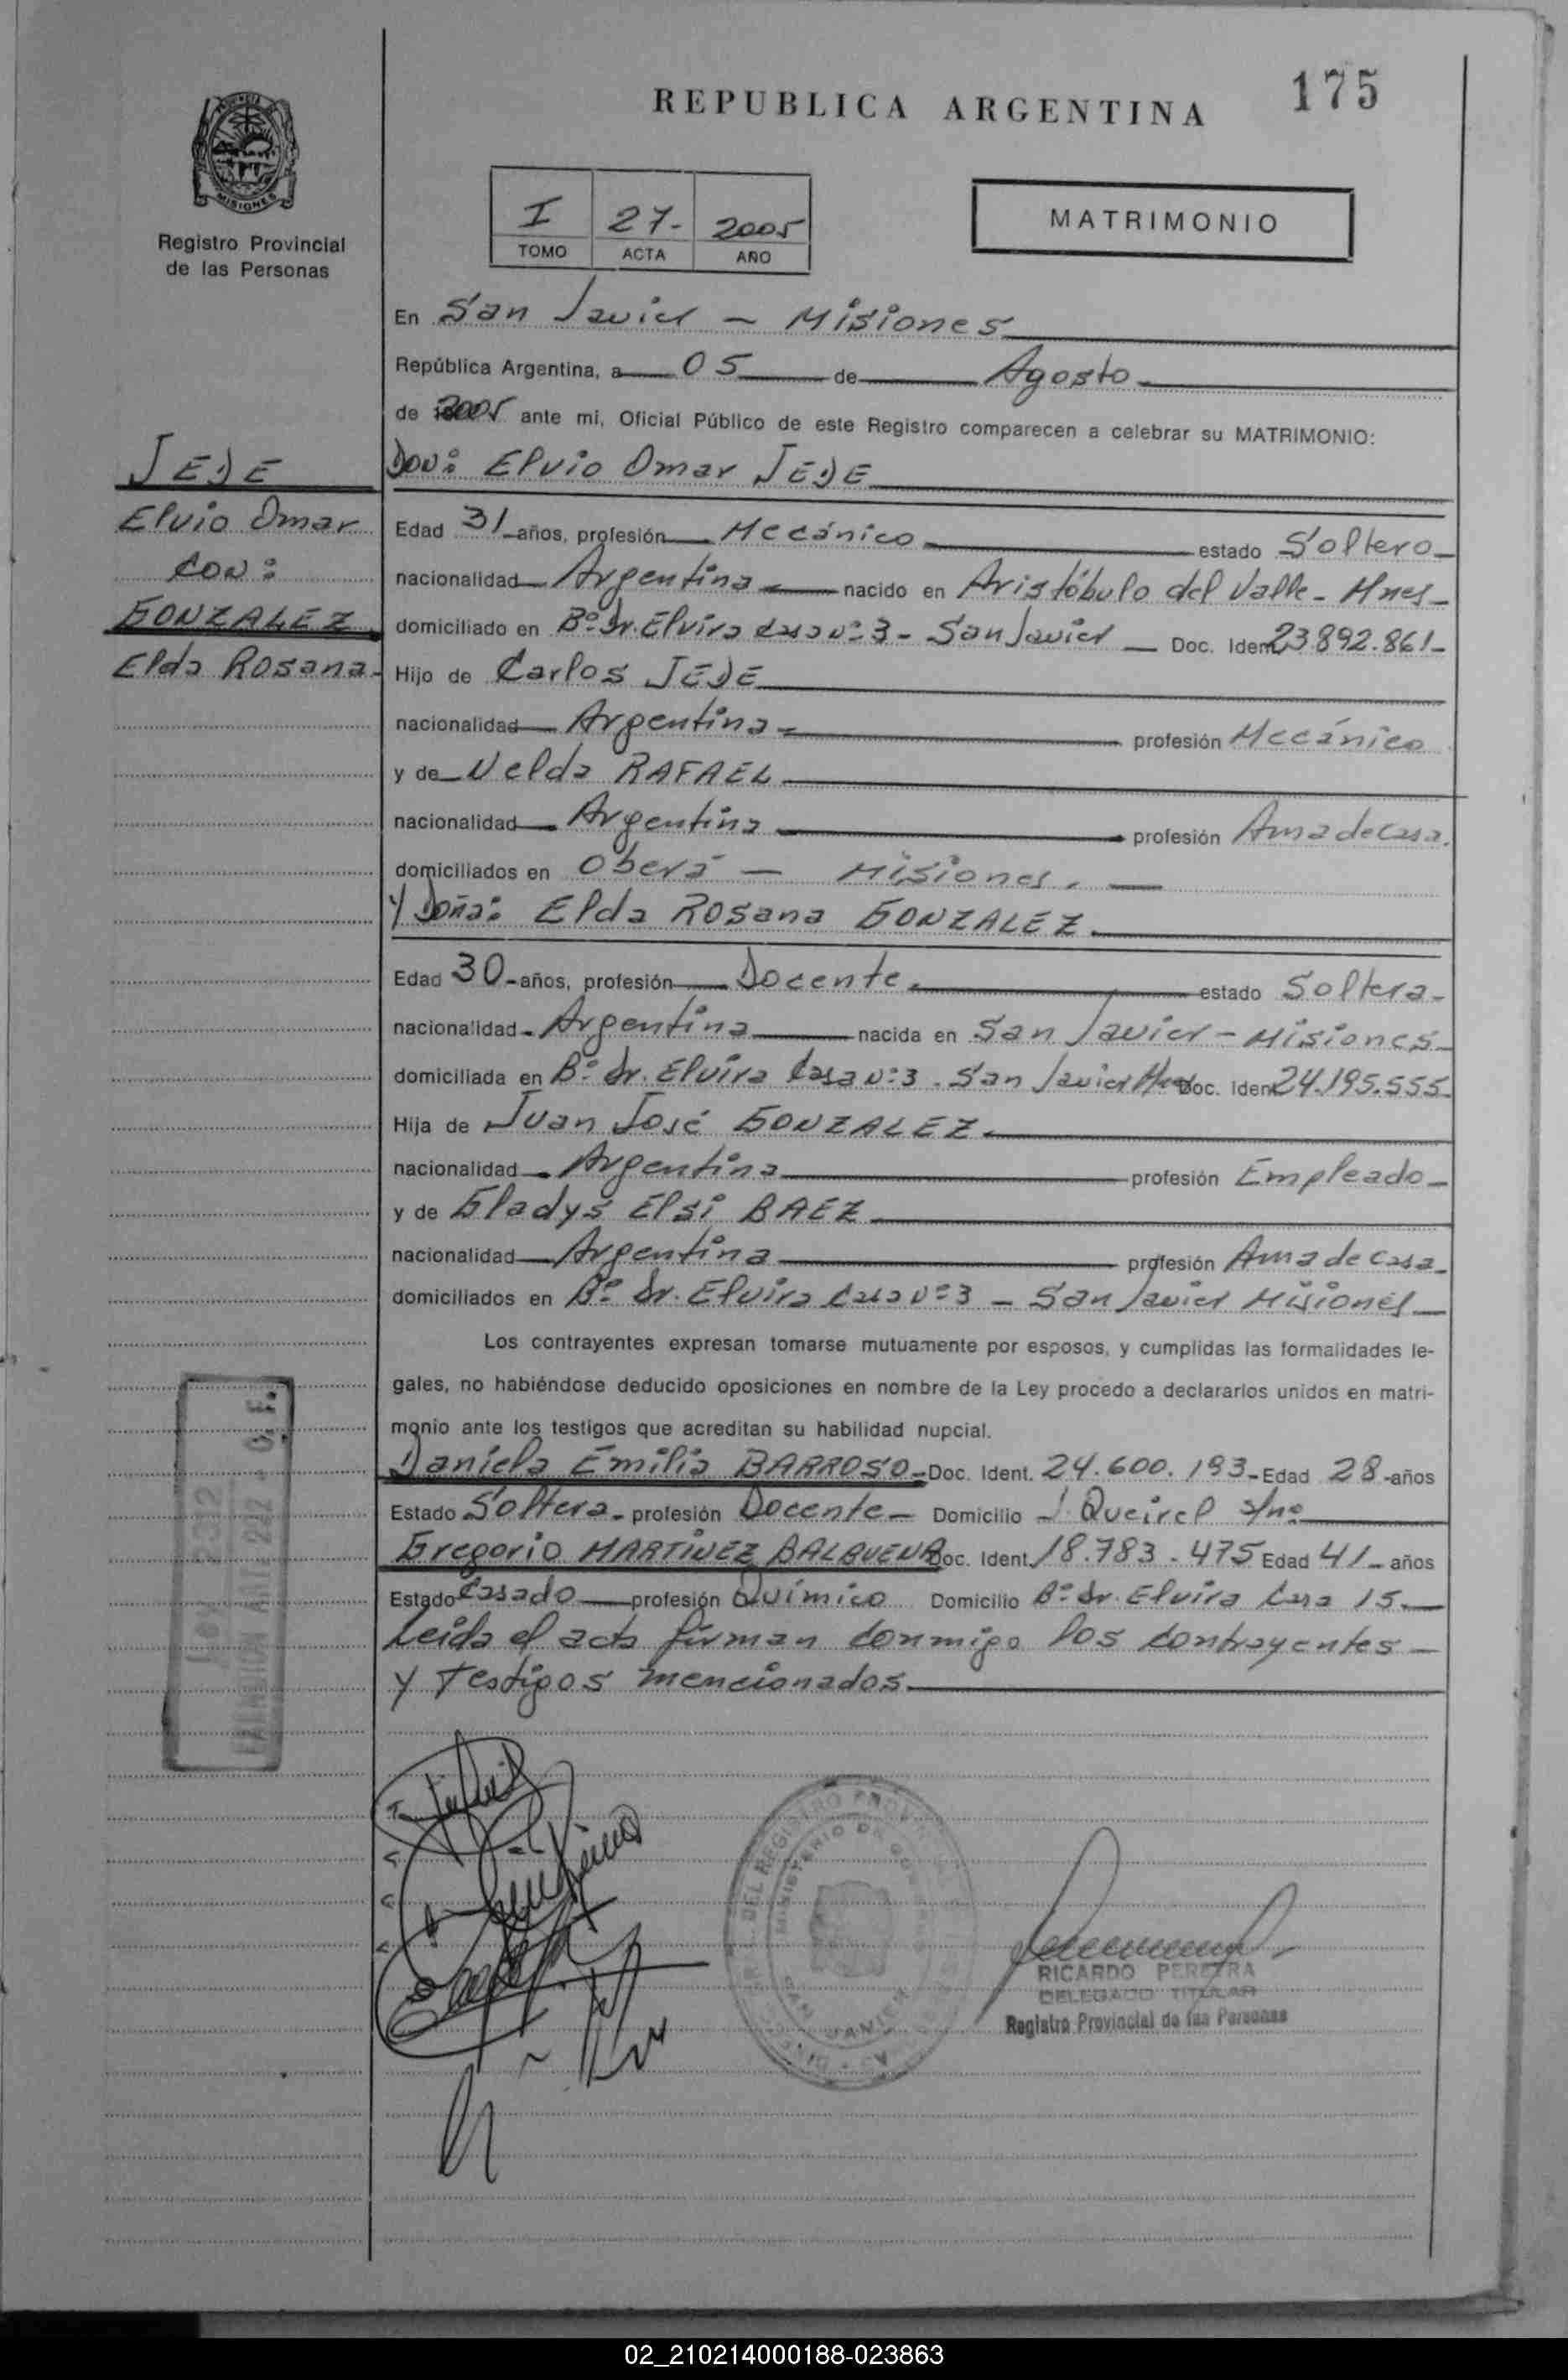 175
REPUBLICA ARGENTINA
MISIONES
Registro Provincial
de las Personas
I 27- 2005
TOMO ACTA AÑO
MATRIMONIO
En San Javier - Misiones
República Argentina, a 05 de Agosto
de 2005 ante mi, Oficial Público de este Registro comparecen a celebrar su MATRIMONIO:
JEDE
Elvio Omar
CON:
GONZALEZ
Elda Rosana-
DON: Elvio Omar JEDE
Edad 31 años, profesión Mecánico estado Soltero
nacionalidad Argentina nacido en Aristóbulo del Valle - Mnes-
domiciliado en Bº Dr. Elvira casa Nº 3 - San Javier Doc. Ident. 23.892.861-
Hijo de Carlos JEDE
nacionalidad Argentina profesión Mecánico
y de Nelda RAFAEL
nacionalidad Argentina profesión Ama de casa.
domiciliados en Oberá - Misiones.
Y Doña: Elda Rosana GONZALEZ
Edad 30 -años, profesión Docente. estado Soltera-
nacionalidad Argentina nacida en San Javier - Misiones
domiciliada en Bº Dr. Elvira Casa Nº 3 . San Javier Mnes Doc. Ident. 24.195.555
Hija de Juan José GONZALEZ.
nacionalidad Argentina profesión Empleado
y de Gladys Elsi BAEZ
nacionalidad Argentina profesión Ama de casa
domiciliados en Bº Dr. Elvira Casa Nº 3 - San Javier Misiones
Los contrayentes expresan tomarse mutuamente por esposos, y cumplidas las formalidades le-
gales, no habiéndose deducido oposiciones en nombre de la Ley procedo a declararlos unidos en matri-
monio ante los testigos que acreditan su habilidad nupcial.
Daniela Emilia BARROSO-Doc. Ident. 24.600.193-Edad 28-años
Estado Soltera- profesión Docente- Domicilio J Queirel s/nº
Gregorio MARTINEZ BALBUENA Doc. Ident. 18.783.475 Edad 41 años
Estado Casado profesión Químico Domicilio Bº Dr. Elvira Casa 15.
Leida el acta firman conmigo los contrayentes
y testigos mencionados.
RICARDO PEREYRA
DELEGADO TITULAR
Registro Provincial de las Personas
SAN JAVIER
02_210214000188-023863